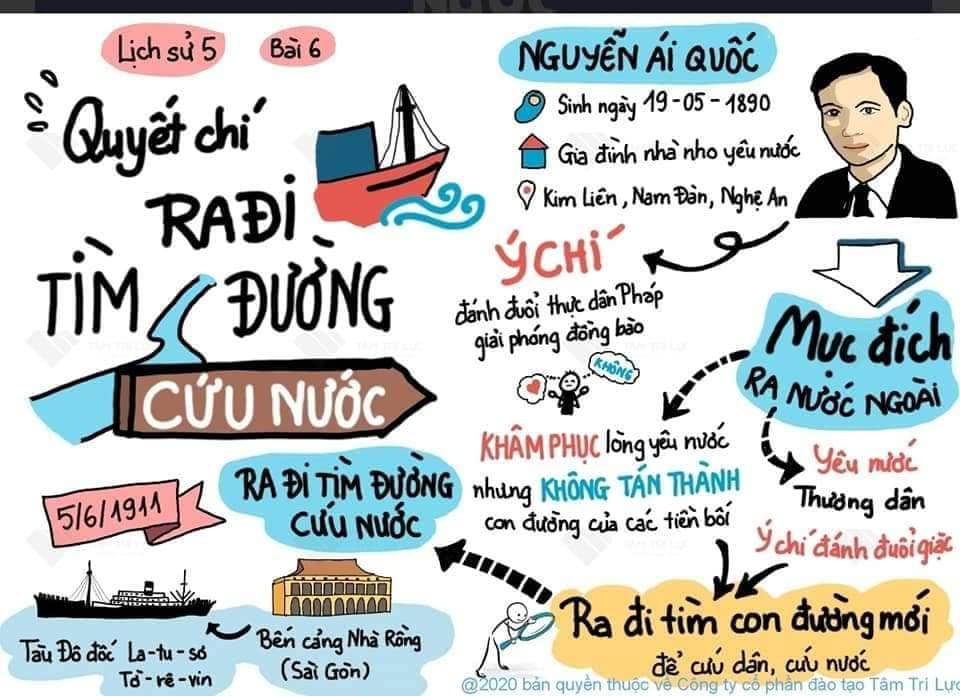 Nước
Lịch sử 5
Bài 6
Quyết chí
RA ĐI
TÌM ĐƯỜNG
CỨU NƯỚC
NGUYỄN ÁI QUỐC
Sinh ngày 19-05-1890
Gia đình nhà nho yêu nước
Kim Liên, Nam Đàn, Nghệ An
Ý CHÍ
đánh đuổi thực dân Pháp
giải phóng đồng bào
KHÔNG
Mục đích
RA NƯỚC NGOÀI
KHÂM PHỤC lòng yêu nước
nhưng KHÔNG TÁN THÀNH
con đường của các tiền bối
Yêu nước
Thương dân
Ý chí đánh đuổi giặc
Ra đi tìm con đường mới
để cứu dân, cứu nước
RA ĐI TÌM ĐƯỜNG
CỨU NƯỚC
5/6/1911
Tàu Đô đốc La-tu-sơ
Tờ-rê-vin
Bến cảng Nhà Rồng
(Sài Gòn)
TÂM TRÍ LỰC
@2020 bản quyền thuộc về Công ty cổ phần đào tạo Tâm Trí Lực